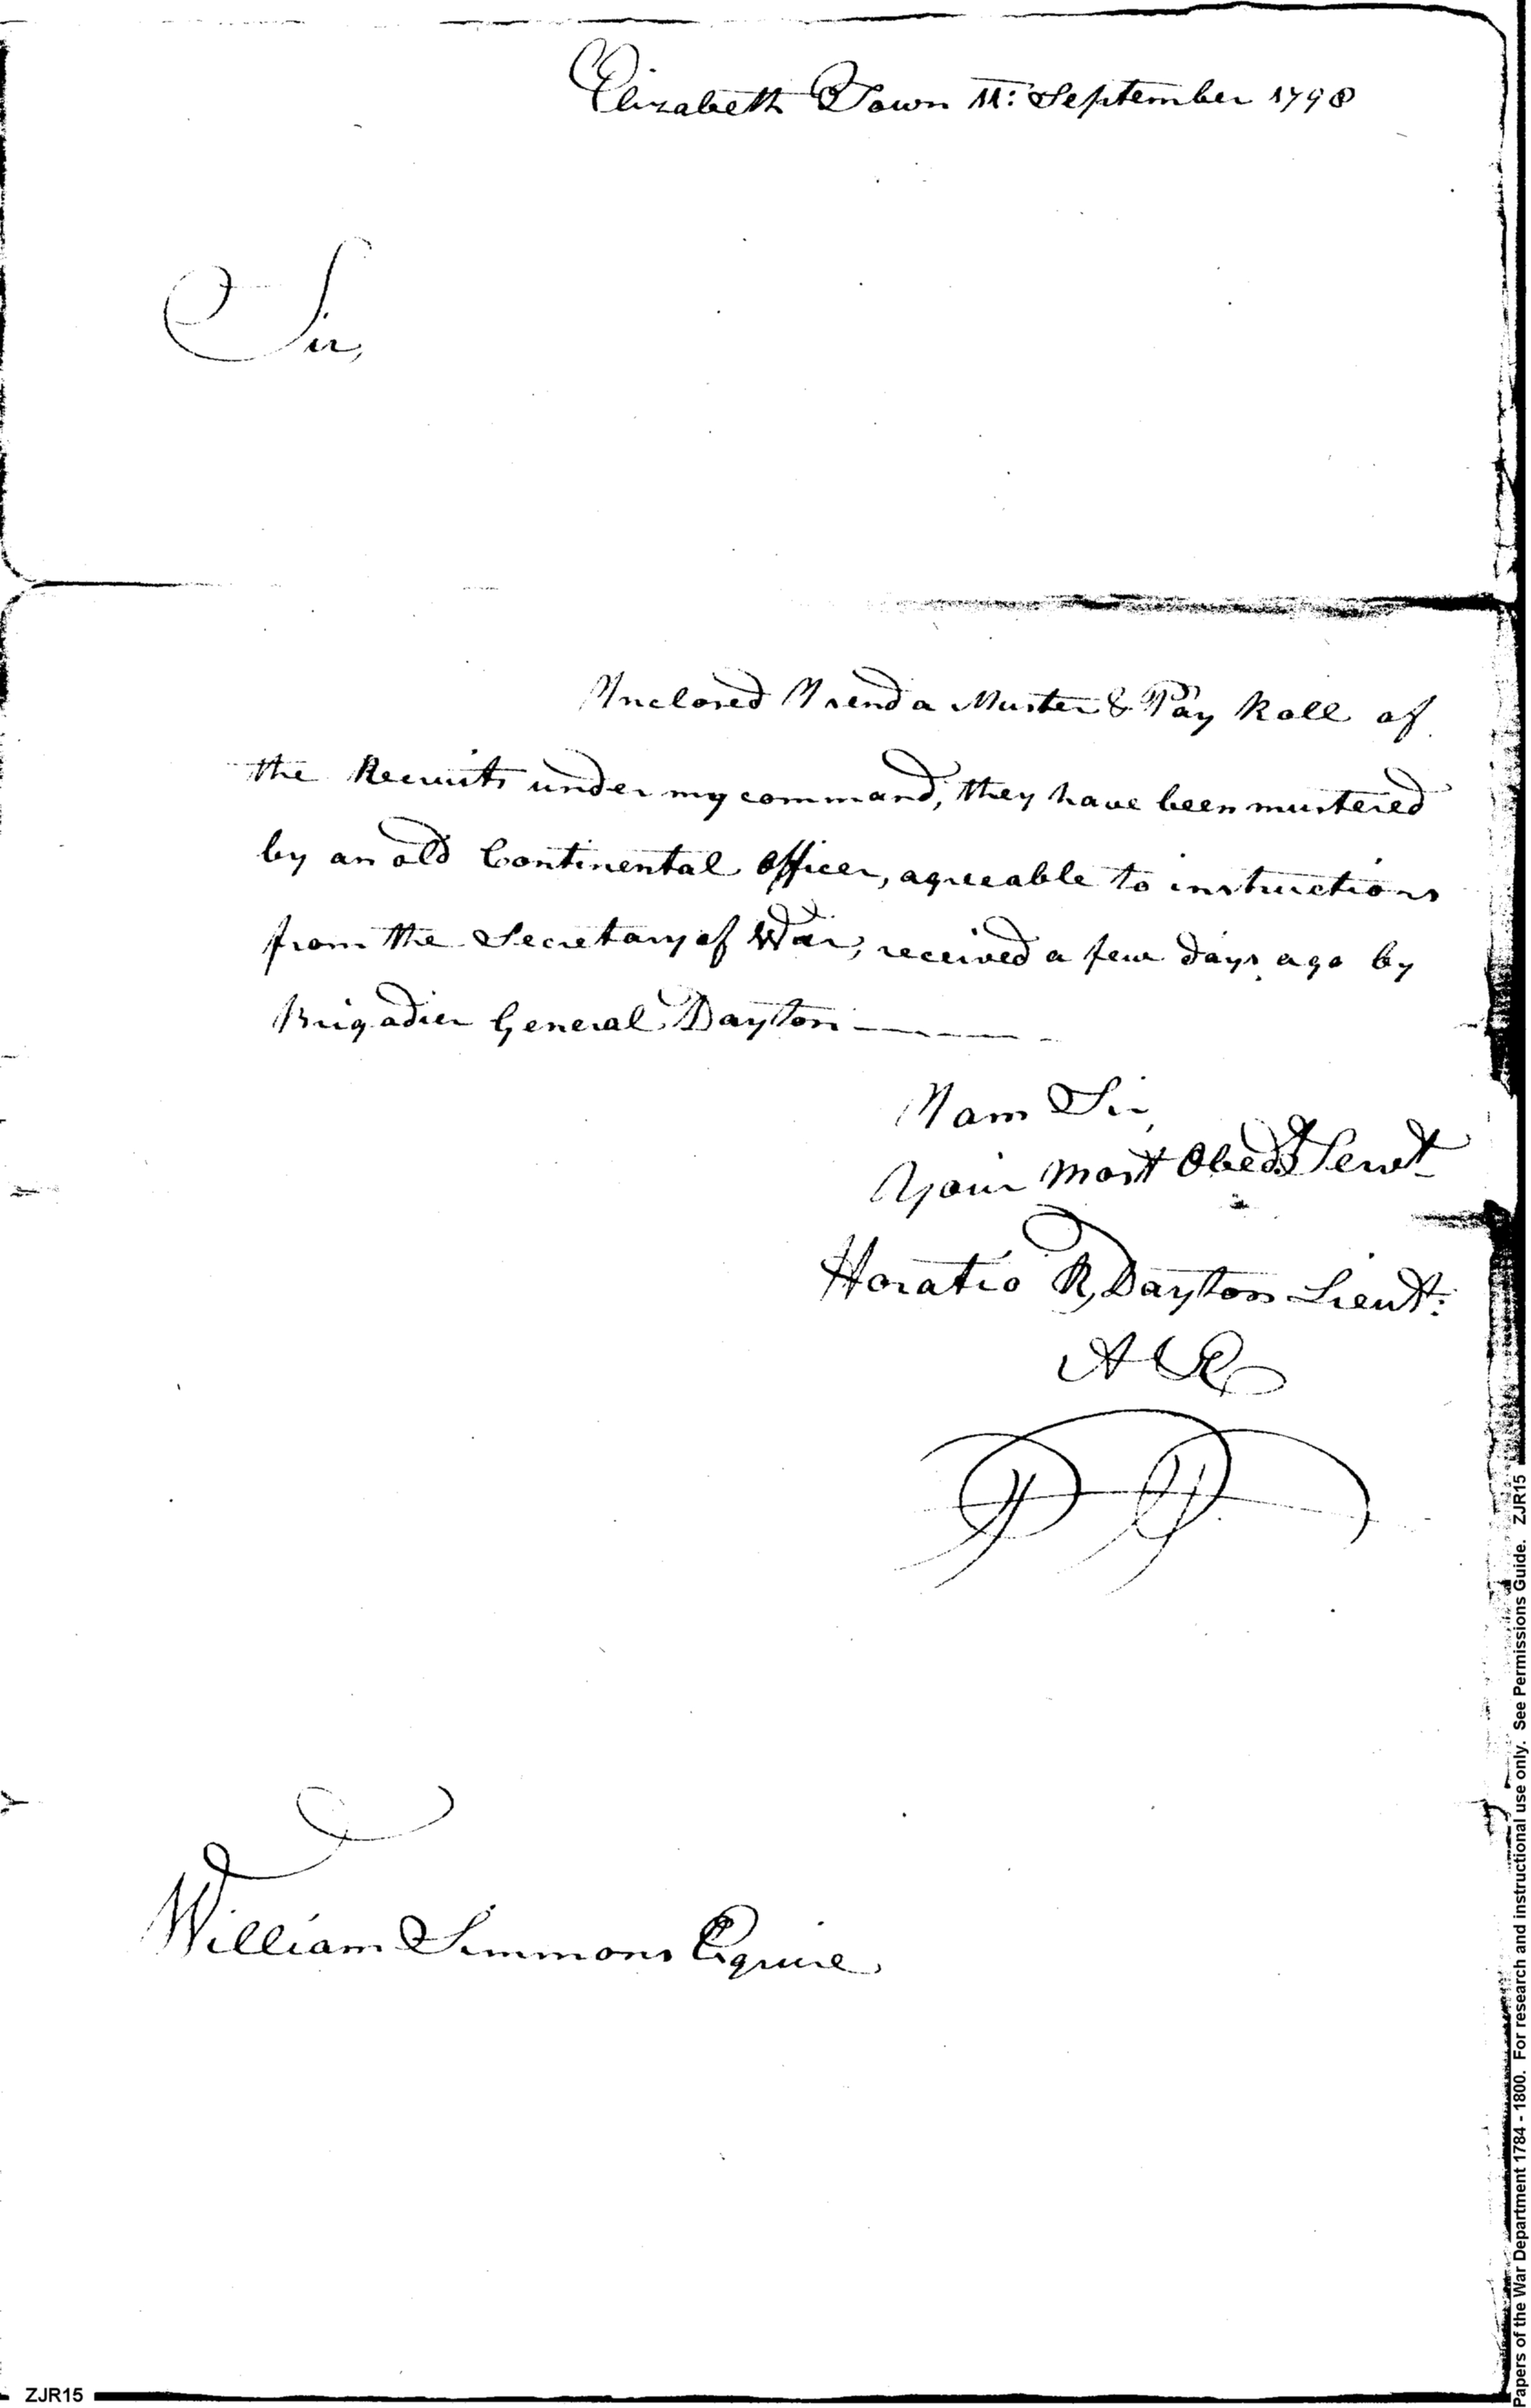 Elizabeth Town 11: September 1798
Sir,
Inclosed I send a Muster & Pay Roll of
the Recruits under my command, they have been mustered
by an old Continental Officer, agreeable to instructions
from the Secretary of War, received a few days ago by
Brigadier General Dayton
I am Sir,
Your most Obedt Servt
Horatio R, Dayton Lieut:
William Simmons Esquire,
ZJR15
Papers of the War Department 1784 - 1800. For research and instructional use only. See Permissions Guide. ZJR15